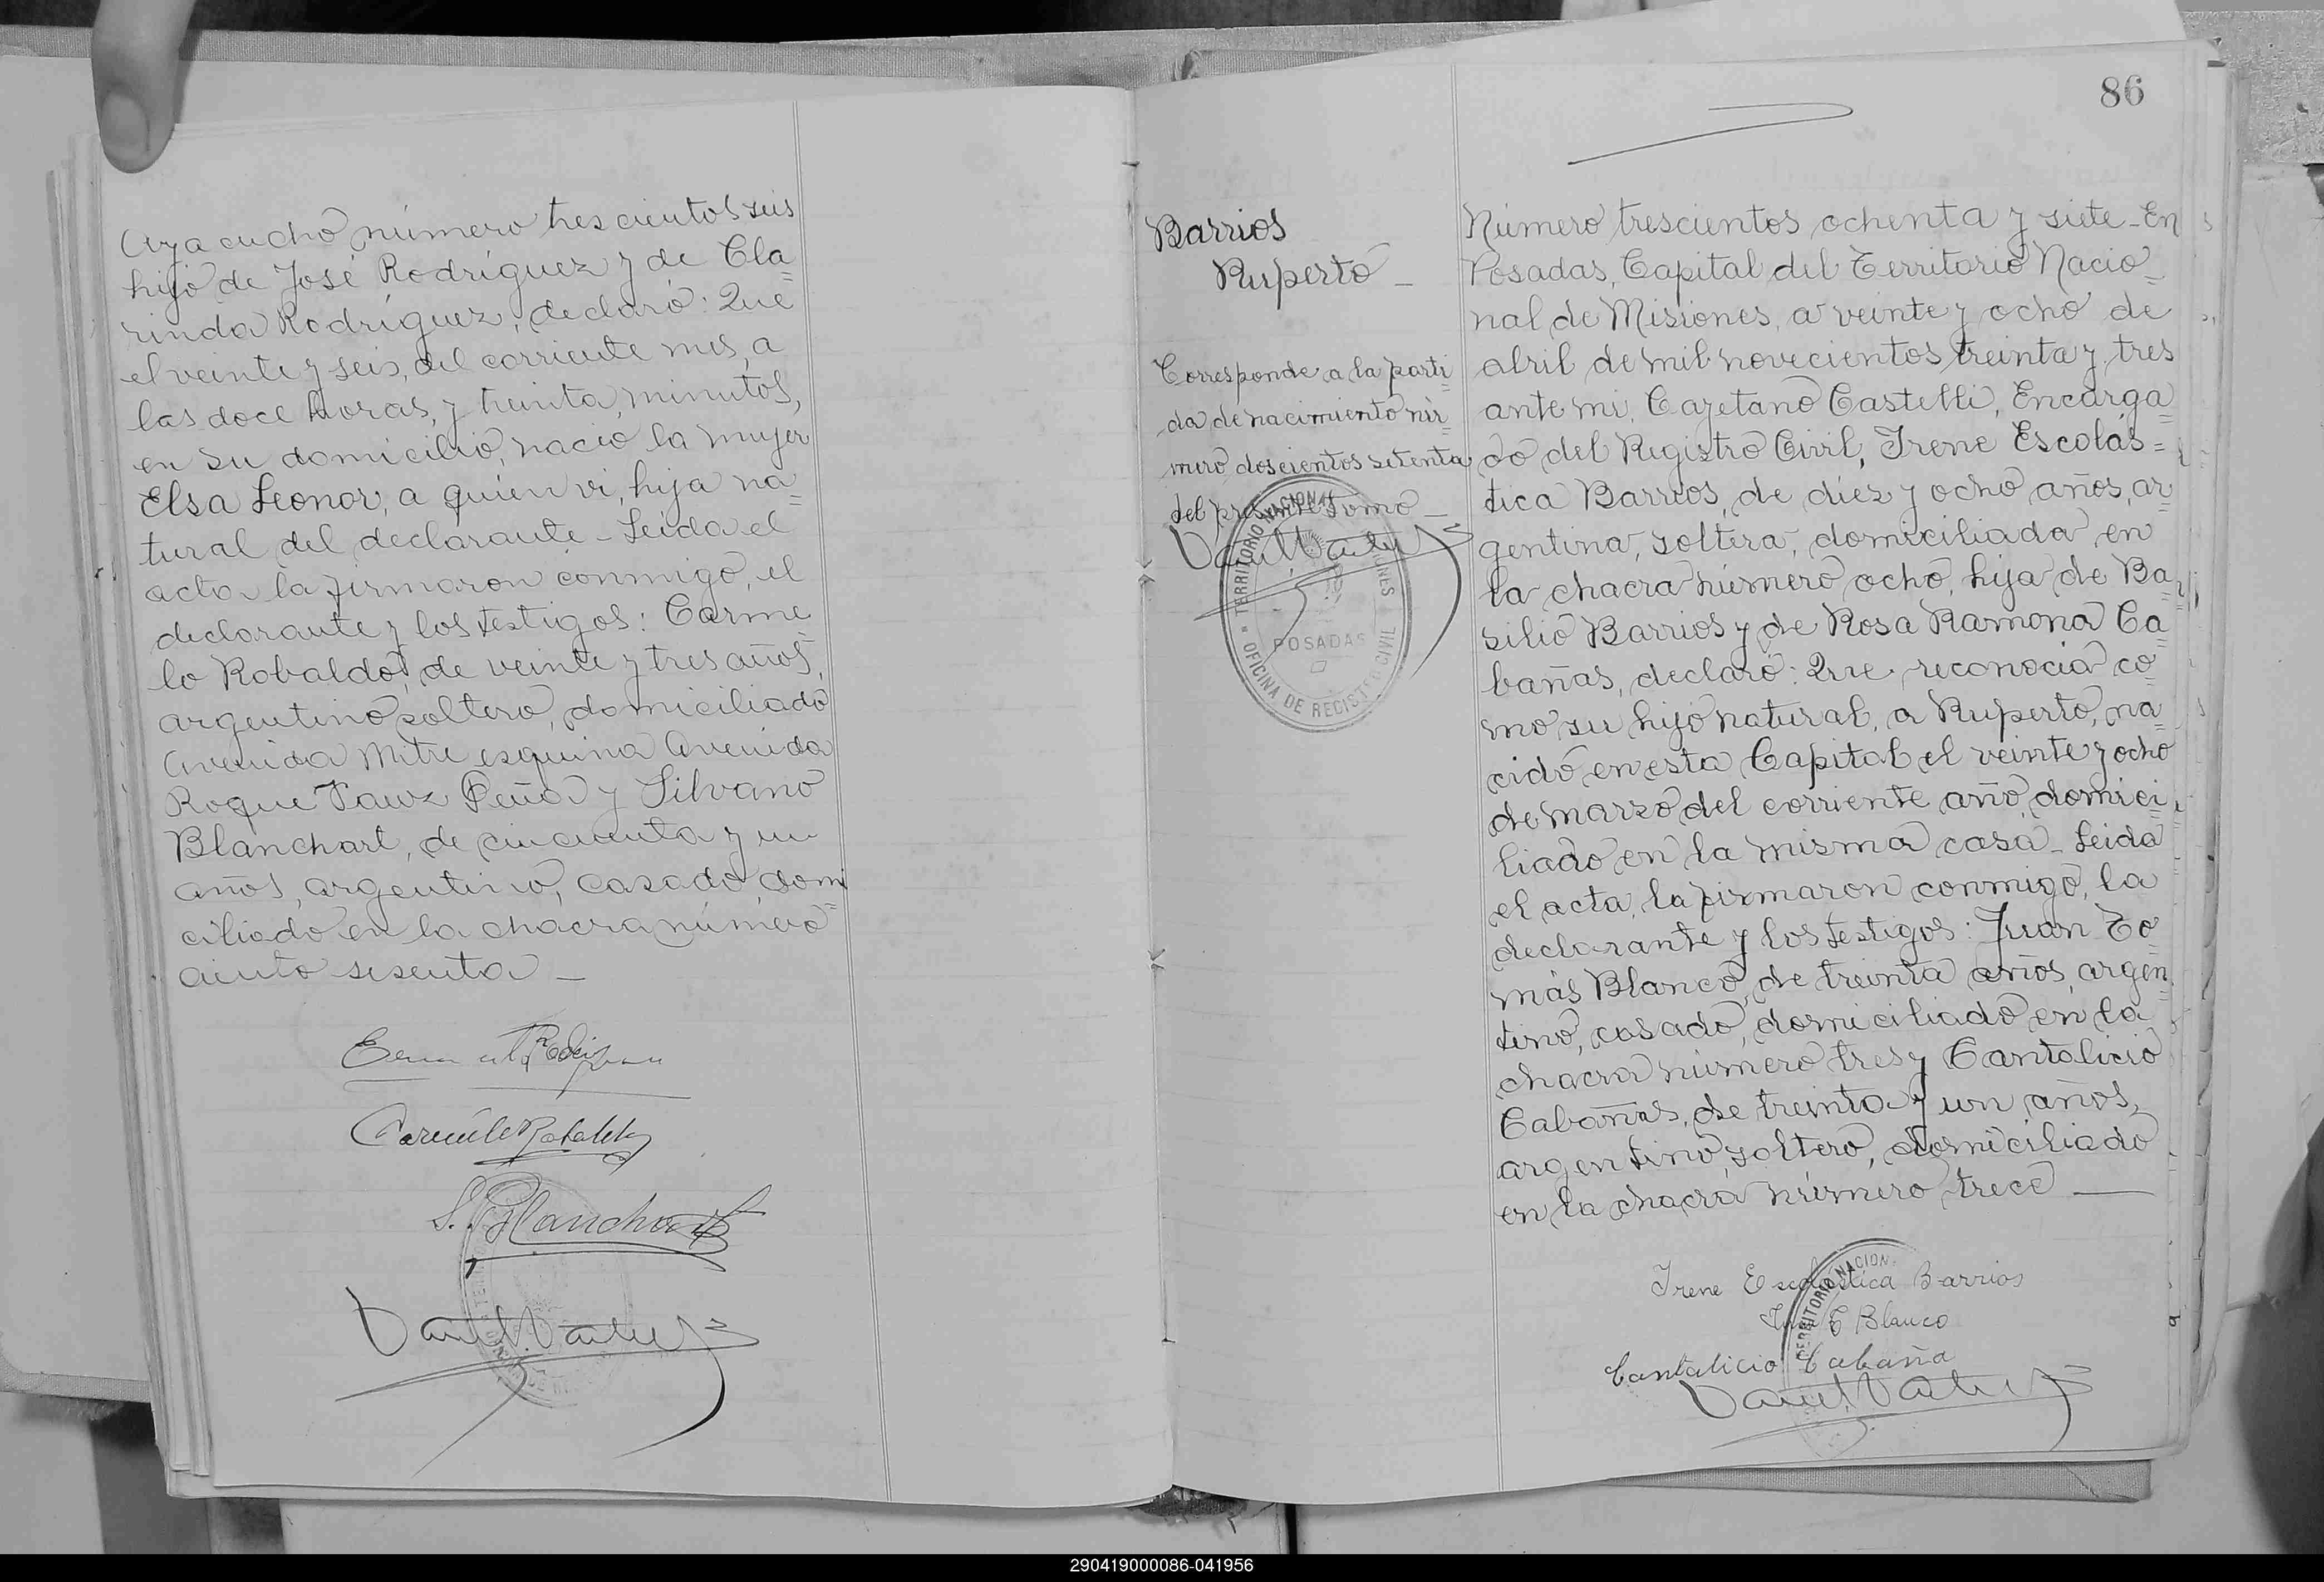 Ayacucho número trescientos seis
hijo de José Rodríguez y de Cla=
rinda Rodríguez, declaró: Que
el veinte y seis, del corriente mes, a
las doce horas, y treinta, minutos,
en su domicilio, nació la mujer
Elsa Leonor, a quien vi, hija na=
tural del declarante - Leida el
acta la firmaron conmigo, el
declarante y los testigos: Carme
lo Robaldo, de veinte y tres años,
argentino soltero, domiciliado
Avenida Mitre esquina Avenida
Roque Saenz Peña y Silvano
Blanchart, de cincuenta y un
años, argentino, casado domi=
ciliado en la chacra número
ciento sesenta -
S. Blanchart
86
Barrios
Ruperto -
Corresponde a la parti=
da de nacimiento nú=
mero doscientos setenta
del presente tomo -
TERRITORIO NACIONAL MISIONES
POSADAS
OFICINA DE REGISTRO CIVIL
Número trescientos ochenta y siete - En
Posadas, Capital del Territorio Nacio=
nal de Misiones, a veinte y ocho de
abril de mil novecientos treinta y tres
ante mi, Cayetano Castelli, Encarga=
do del Registro Civil, Irene Escolás=
tica Barrios, de diez y ocho años, ar
gentina, soltera, domiciliada en
la chacra número ocho, hija de Ba=
silio Barrios y de Rosa Ramona Ca=
bañas, declaró: Que reconocia co=
mo su hijo natural, a Ruperto, na=
cido en esta Capital el veinte y ocho
de marzo del corriente año, domici=
liado en la misma casa - Leida
el acta, la firmaron conmigo, la
declarante y los testigos: Juan To=
más Blanco, de treinta años, argen=
tino, casado, domiciliado en la
chacra número tres y Cantalicio
Cabañas, de treinta y un años,
argentino, soltero, domiciliado
en la chacra número trece -
Irene Escolástica Barrios
T Blanco
Cantalicio Cabaña
TERRITORIO NACION
290419000086-041956